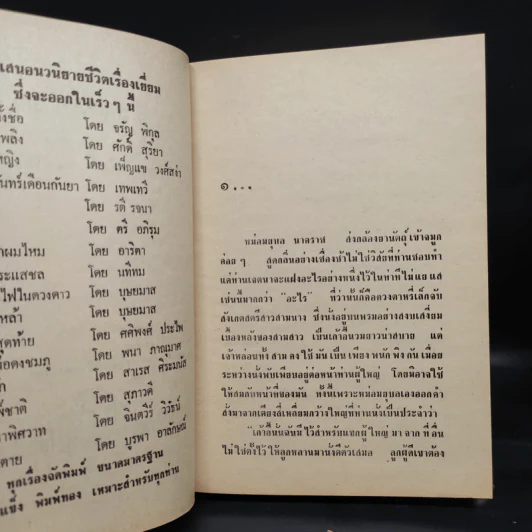 เสนอนวนิยายชีวิตเรื่องเยี่ยม
ซึ่งจะออกในเร็ว ๆ นี้
โดย จรัญ พิกุล
เพลิง โดย ศักดิ์ สุริยา
หญิง โดย เพ็ญแข วงศ์สง่า
โดย เทพเทวี
โดย รตี รจนา
โดย ตรี อภิรุม
โดย อาริตา
โดย นทีทม
ไฟในดวงดาว โดย บุษยมาส
โดย บุษยมาส
สุดท้าย โดย ศศิพงศ์ ประไพ
โดย พนา ภาณุมาศ
โดย สาเรส ศิระมนัส
โดย สุภาวดี
โดย จินตวีร์ วิวัธน์
โดย บูรพา อาลักษณ์
ทุกเรื่องจัดพิมพ์ ขนาดมาตรฐาน
แข็ง พิมพ์ทอง เหมาะสำหรับทุกท่าน
๑...
หม่อมยุพล นาคราช ส่งกล้องยานัตถุ์เข้าจมูก
ค่อย ๆ สูดกลิ่นอย่างเชื่องช้าไม่ใช่วิสัยที่ท่านชอบทำ
แต่ท่านเจตนาจะแฝงอะไรอย่างหนึ่งไว้ในท่าทีไม่แยแส
เช่นนี้มากกว่า "อะไร" ที่ว่านั้นก็คือดวงตาที่เล็กจับ
สังเกตสตรีสาวสามนาง ซึ่งนั่งอยู่บนพรมอย่างสงบเสงี่ยม
เบื้องหลังของสามสาว เป็นเก้าอี้นวมยาวน่าสบาย แต่
เจ้าหล่อนทั้งสามคงใช้มันเป็นเพียงพนักพิงกันเมื่อย
ระหว่างนั่งพับเพียบอยู่ต่อหน้าท่านผู้ใหญ่ โดยมิอาจใช้
ให้สมกับหน้าที่ของมัน ทั้งนี้เพราะหม่อมยุพลเองออกคำ
สั่งมาจากเตียงสี่เหลี่ยมกว้างใหญ่ที่ท่านนั่งเป็นประจำว่า
"เก้าอี้นั่นฉันมีไว้สำหรับแขกผู้ใหญ่มาจากที่อื่น
ไม่ใช่ตั้งไว้ให้ลูกหลานมานั่งตีตัวเสมอ ลูกผู้ดีเขาต้อง